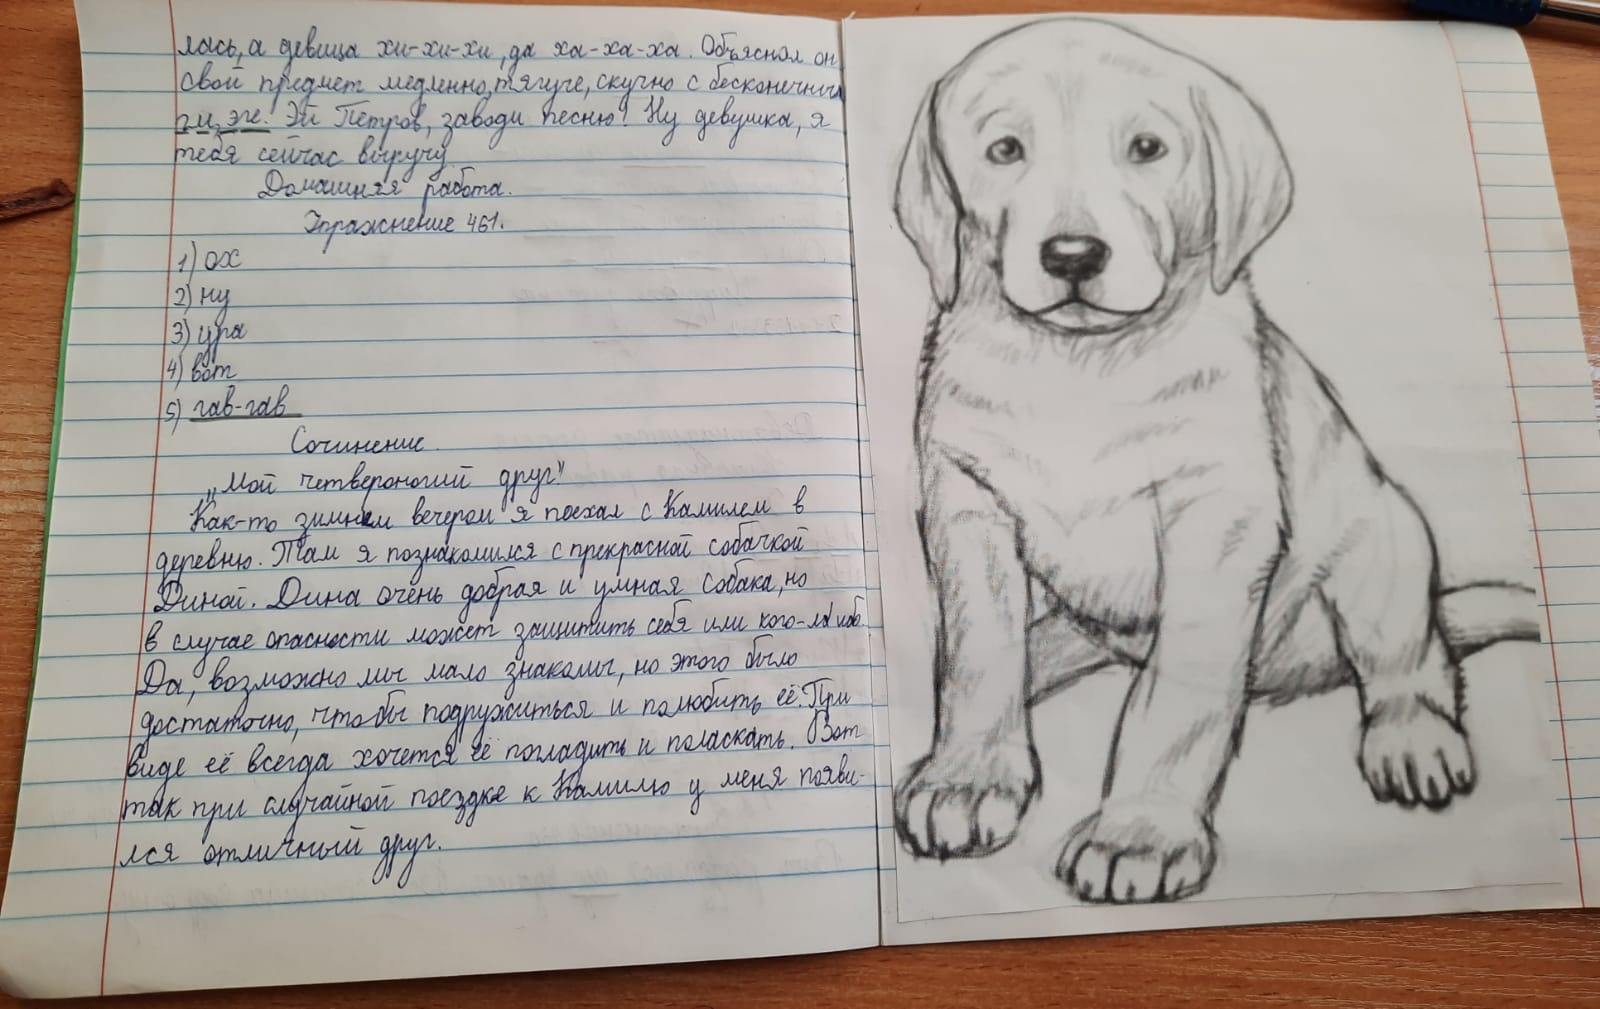 лась, а девица хи-хи-хи, да ха-ха-ха. Объяснял он
свой предмет медленно, тягуче, скучно с бесконечными
гм, эге. Эй Петров, заводи песню! Ну девушка, я
тебя сейчас выручу.
Домашняя работа.
Упражнение 461.
1) ох
2) ну
3) ура
4) вот
5) гав-гав
Сочинение.
„Мой четвероногий друг"
Как-то зимнем вечером я поехал с Камилем в
деревню. Там я познакомился с прекрасной собачкой
Диной. Дина очень добрая и умная собака, но
в случае опасности может защитить себя или кого-
Да, возможно мы мало знакомы, но этого было
достаточно, чтобы подружиться и полюбить её. При
виде её всегда хочется её погладить и поласкать. Вот
так при случайной поездке к Камилю у меня появи-
лся отличный друг.